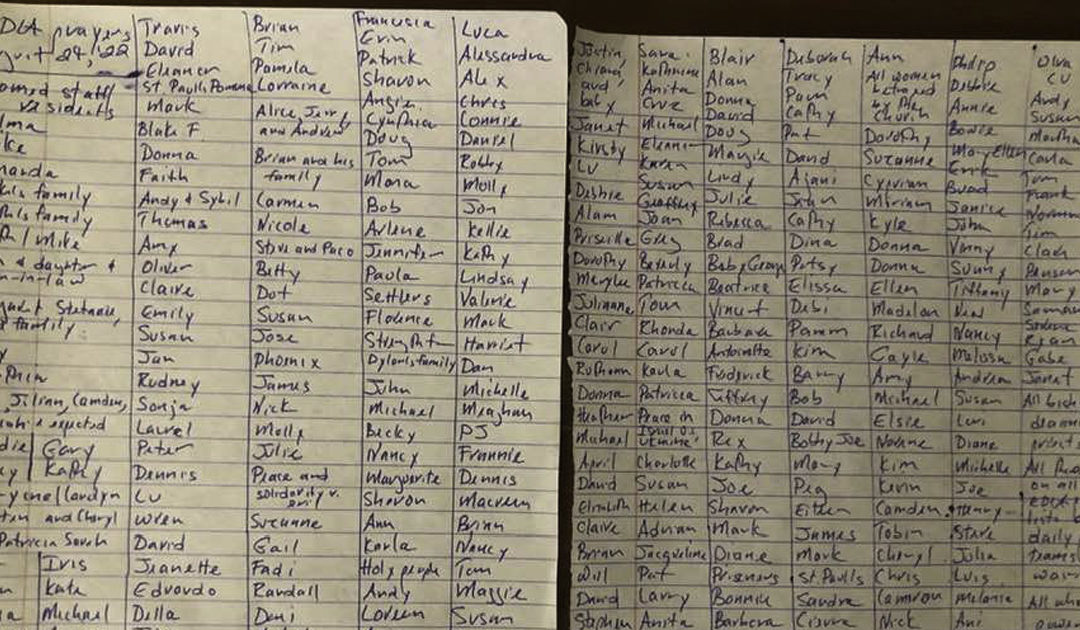 prayers
24, '22
staff
residents
Ice
his family
his family
Mike
& daughter &
-in-law
Stefanie,
family
Jilian, Camden,
rejected
Gary
Kathy
and Cheryl
Patricia Sarah
Iris
Kate
Michael
Travis
David
Eleanor
St. Paul's Pomona
Mark
Blake F
Donna
Faith
Andy & Sybil
Thomas
Amy
Oliver
Claire
Emily
Susan
Jan
Rodney
Sonja
Laurel
Peter
Dennis
LU
Wren
David
Jeanette
Edvardo
Della
Brian
Tim
Pamela
Lorraine
Alice, Jerry
and Andrew
Brian and his
family
Carmen
Nicole
Steve and Paco
Betty
Dot
Susan
Jose
Phoenix
James
Nick
Molly
Julie
Peace and
solidarity v.
evil
Suzanne
Gail
Fadi
Randall
Deni
Francesca
Erin
Patrick
Sharon
Angie
Cynthia
Doug
Tom
Mona
Bob
Arlene
Jennifer
Paula
Settlers
Florence
Strength
Dylan's family
John
Michael
Becky
Nancy
Marguerite
Sharon
Ann
Karla
Holy people
Andy
Loreen
Luca
Alessandra
Alex
Chris
Connie
Daniel
Robby
Molly
Jon
Kellie
Kathy
Lindsay
Valerie
Mark
Harriet
Dan
Michelle
Meghan
PJ
Frannie
Dennis
Macreen
Brian
Nancy
Tom
Maggie
Susan
Justin,
Chiara,
and
baby
Janet
Kirsty
LU
Debbie
Alam
Priscilla
Dorothy
Merylee
Julianna
Clair
Carol
Ruthann
Donna
Heather
Michael
April
David
Elizabeth
Claire
Brian
Will
David
Stephen
Sara
Katherine
Anita
Cruz
Michael
Eleanor
Karen
Susan
Geoffrey
Joan
Greg
Beverly
Patricia
Tom
Rhonda
Carol
Karla
Patricia
Peace in
Ukraine
Charlotte
Susan
Helen
Adrian
Jacqueline
Pat
Larry
Anita
Blair
Alan
Donna
David
Doug
Margie
Lindy
Julie
Rebecca
Brad
Baby George
Beatrice
Vincent
Barbara
Antoinette
Frederick
Tiffany
Donna
Rex
Kathy
Joe
Sharon
Mark
Diane
Prisoners
Bonnie
Barbara
Deborah
Tracy
Pam
Cathy
Pat
David
Ajani
John
Cathy
Dina
Patsy
Elissa
Debi
Pamm
Kim
Barry
Bob
David
Bobby Joe
Mary
Peg
Eileen
James
Mark
St Paul's
Sandra
Ann
All women
betrayed
by the
church
Dorothy
Suzanne
Cyprian
Miriam
Kyle
Donna
Donna
Ellen
Madelon
Richard
Gayle
Amy
Michael
Elsie
Norine
Kim
Kevin
Camden
Tobin
Cheryl
Chris
Cameron
Nick
Philip
Debbie
Annie
Bowie
Mary Ellen
Erik
Brad
Janice
John
Vinny
Sunny
Tiffany
Neal
Nancy
Melissa
Andrea
Susan
Lori
Diane
Michelle
Joe
Henry
Steve
Julia
Luis
Melanie
Ani
CU
Andy
Susan
Martha
Carla
Tom
Frank
Tim
Mary
Ryan
Gabe
Janet
on all
daily